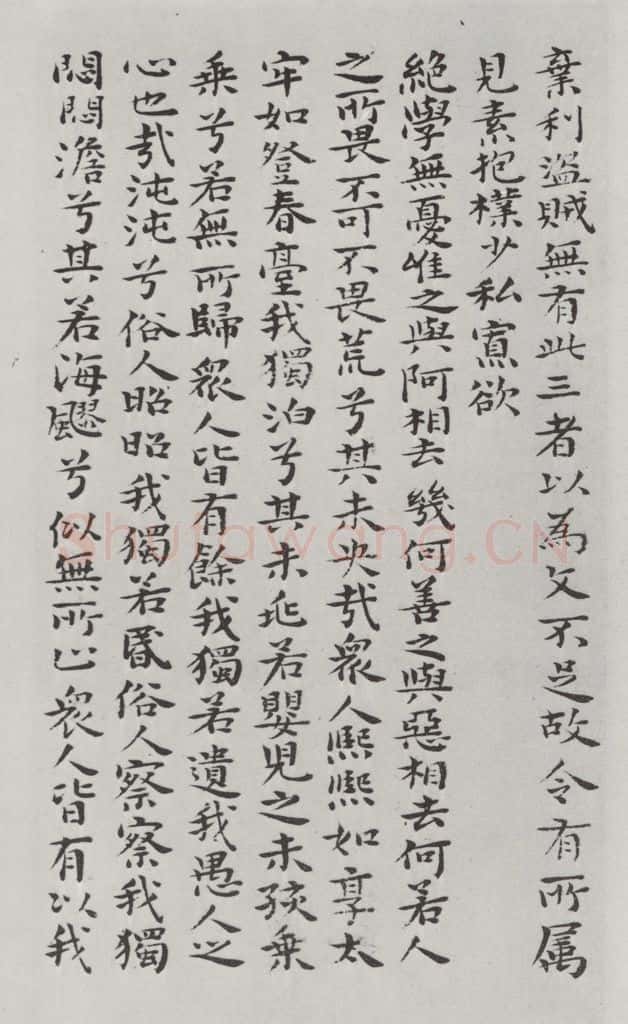 棄利盜賊無有此三者以為文不足故令有所属
見素抱樸少私寡欲
絕學無憂唯之與阿相去幾何善之與惡相去何若人
之所畏不可不畏荒兮其未央哉眾人熙熙如享太
牢如登春臺我獨泊兮其未兆若嬰兒之未孩乘
乘兮若無所歸眾人皆有餘我獨若遺我愚人之
心也哉沌沌兮俗人昭昭我獨若昏俗人察察我獨
悶悶澹兮其若海飂兮似無所止眾人皆有以我
Shufawang.CN